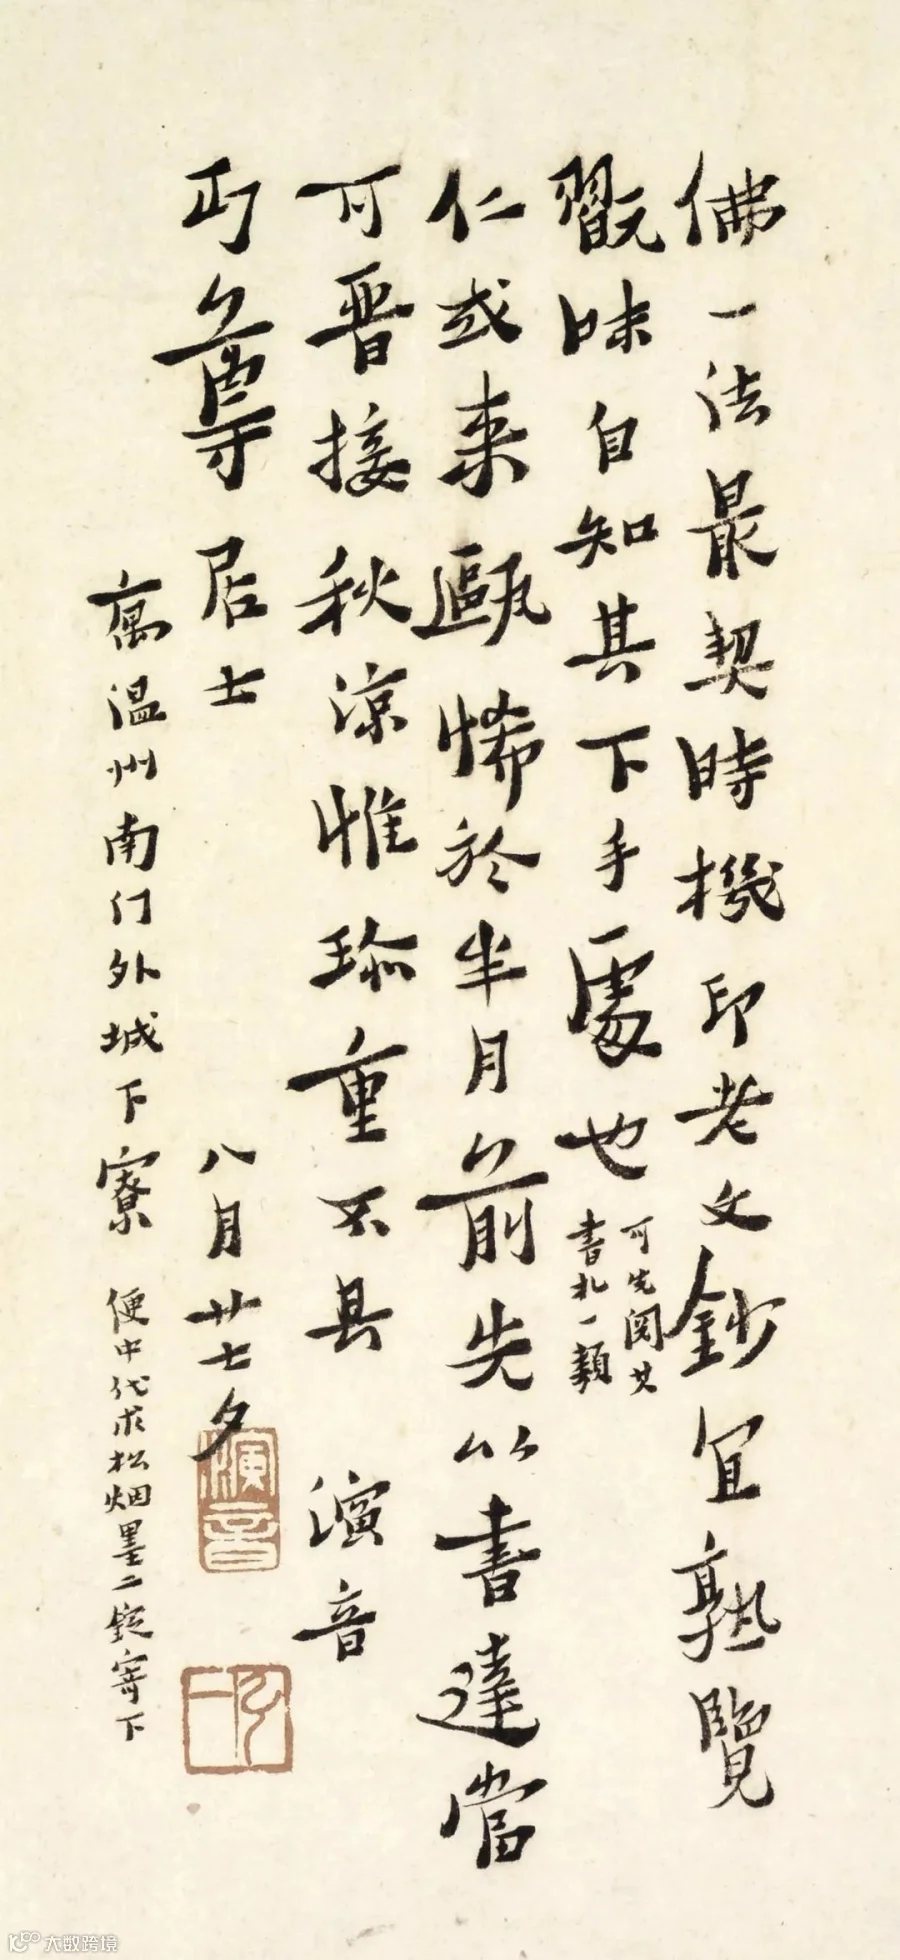 佛一法最契時機印老文鈔宜熟覽
翫味自知其下手處也
可先閱其
書札一類
仁或来甌悕於半月前先以書達當
可晋接秋涼惟珎重不具 演音
丏尊居士 八月廿七夕
寓温州南门外城下寮 便中代求松烟墨二錠寄下
演音
弘一
大数跨境